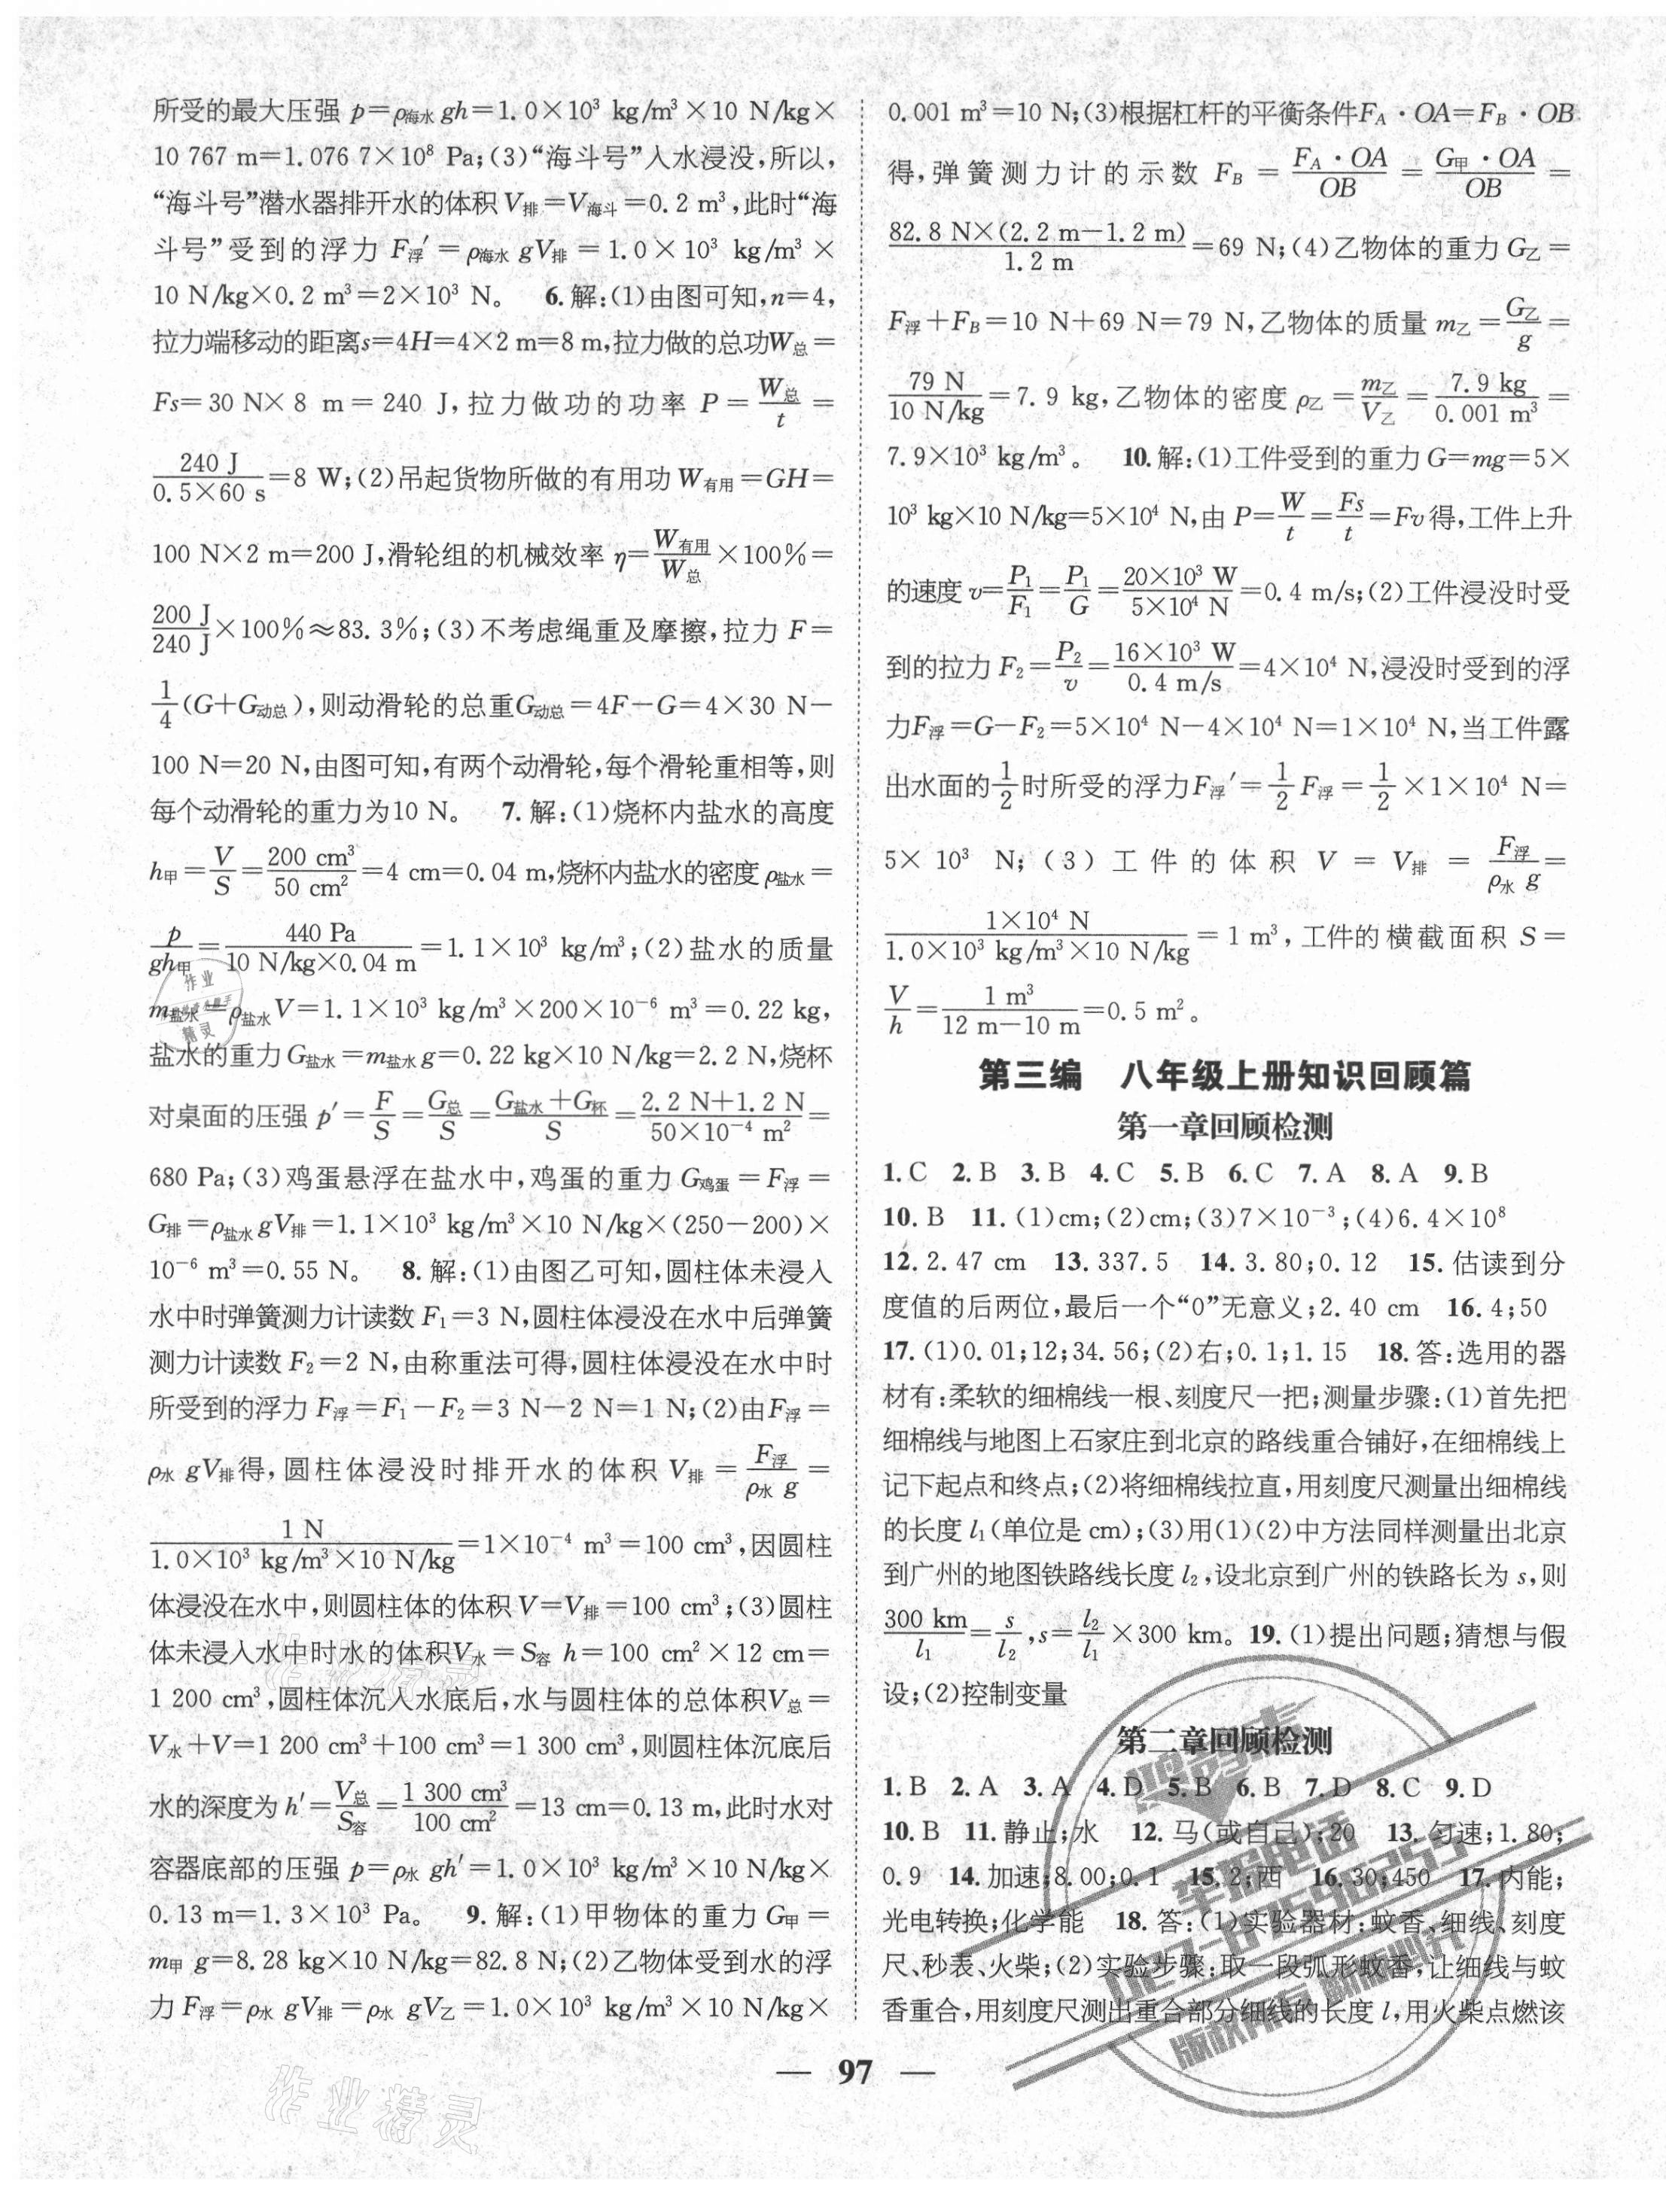 所受的最大压强 p=ρ海水 gh=1.0×10³ kg/m³×10 N/kg×
10 767 m=1.076 7×10⁸ Pa;(3)“海斗号”入水浸没,所以,
“海斗号”潜水器排开水的体积V排=V海斗=0.2 m³,此时“海
斗号”受到的浮力 F浮′=ρ海水 gV排=1.0×10³ kg/m³×
10 N/kg×0.2 m³=2×10³ N。 6.解:(1)由图可知,n=4,
拉力端移动的距离s=4H=4×2 m=8 m,拉力做的总功W总=
Fs=30 N×8 m=240 J,拉力做功的功率 P=W总/t=
240 J/(0.5×60 s)=8 W;(2)吊起货物所做的有用功W有用=GH=
100 N×2 m=200 J,滑轮组的机械效率 η=W有用/W总×100%=
200 J/240 J×100%≈83.3%;(3)不考虑绳重及摩擦,拉力 F=
1/4(G+G动总),则动滑轮的总重G动总=4F-G=4×30 N-
100 N=20 N,由图可知,有两个动滑轮,每个滑轮重相等,则
每个动滑轮的重力为10 N。 7.解:(1)烧杯内盐水的高度
h甲=V/S=200 cm³/50 cm²=4 cm=0.04 m,烧杯内盐水的密度ρ盐水=
p/gh甲=440 Pa/(10 N/kg×0.04 m)=1.1×10³ kg/m³;(2)盐水的质量
m盐水=ρ盐水V=1.1×10³ kg/m³×200×10⁻⁶ m³=0.22 kg,
盐水的重力G盐水=m盐水g=0.22 kg×10 N/kg=2.2 N,烧杯
对桌面的压强 p′=F/S=G总/S=(G盐水+G杯)/S=(2.2 N+1.2 N)/(50×10⁻⁴ m²)=
680 Pa;(3)鸡蛋悬浮在盐水中,鸡蛋的重力G鸡蛋=F浮=
G排=ρ盐水gV排=1.1×10³ kg/m³×10 N/kg×(250-200)×
10⁻⁶ m³=0.55 N。 8.解:(1)由图乙可知,圆柱体未浸入
水中时弹簧测力计读数F₁=3 N,圆柱体浸没在水中后弹簧
测力计读数F₂=2 N,由称重法可得,圆柱体浸没在水中时
所受到的浮力 F浮=F₁-F₂=3 N-2 N=1 N;(2)由F浮=
ρ水 gV排得,圆柱体浸没时排开水的体积 V排=F浮/(ρ水 g)=
1 N/(1.0×10³ kg/m³×10 N/kg)=1×10⁻⁴ m³=100 cm³,因圆柱
体浸没在水中,则圆柱体的体积V=V排=100 cm³;(3)圆柱
体未浸入水中时水的体积V水=S容 h=100 cm²×12 cm=
1 200 cm³,圆柱体沉入水底后,水与圆柱体的总体积V总=
V水+V=1 200 cm³+100 cm³=1 300 cm³,则圆柱体沉底后
水的深度为h′=V总/S容=1 300 cm³/100 cm²=13 cm=0.13 m,此时水对
容器底部的压强 p=ρ水 gh′=1.0×10³ kg/m³×10 N/kg×
0.13 m=1.3×10³ Pa。 9.解:(1)甲物体的重力G甲=
m甲 g=8.28 kg×10 N/kg=82.8 N;(2)乙物体受到水的浮
力F浮=ρ水 gV排=ρ水 gV乙=1.0×10³ kg/m³×10 N/kg×
0.001 m³=10 N;(3)根据杠杆的平衡条件F_A·OA=F_B·OB
得,弹簧测力计的示数 F_B=F_A·OA/OB=G甲·OA/OB=
82.8 N×(2.2 m-1.2 m)/1.2 m=69 N;(4)乙物体的重力G乙=
F浮+F_B=10 N+69 N=79 N,乙物体的质量m乙=G乙/g=
79 N/(10 N/kg)=7.9 kg,乙物体的密度ρ乙=m乙/V乙=7.9 kg/0.001 m³=
7.9×10³ kg/m³。 10.解:(1)工件受到的重力G=mg=5×
10³ kg×10 N/kg=5×10⁴ N,由P=W/t=Fs/t=Fv得,工件上升
的速度v=P₁/F₁=P₁/G=20×10³ W/5×10⁴ N=0.4 m/s;(2)工件浸没时受
到的拉力F₂=P₂/v=16×10³ W/0.4 m/s=4×10⁴ N,浸没时受到的浮
力F浮=G-F₂=5×10⁴ N-4×10⁴ N=1×10⁴ N,当工件露
出水面的1/2时所受的浮力F浮′=1/2F浮=1/2×1×10⁴ N=
5×10³ N;(3)工件的体积 V=V排=F浮/(ρ水 g)=
1×10⁴ N/(1.0×10³ kg/m³×10 N/kg)=1 m³,工件的横截面积 S=
V/h=1 m³/(12 m-10 m)=0.5 m²。
第三编 八年级上册知识回顾篇
第一章回顾检测
1.C 2.B 3.B 4.C 5.B 6.C 7.A 8.A 9.B
10.B 11.(1)cm;(2)cm;(3)7×10⁻³;(4)6.4×10⁸
12.2.47 cm 13.337.5 14.3.80;0.12 15.估读到分
度值的后两位,最后一个“0”无意义;2.40 cm 16.4;50
17.(1)0.01;12;34.56;(2)右;0.1;1.15 18.答:选用的器
材有:柔软的细棉线一根、刻度尺一把;测量步骤:(1)首先把
细棉线与地图上石家庄到北京的路线重合铺好,在细棉线上
记下起点和终点;(2)将细棉线拉直,用刻度尺测量出细棉线
的长度l₁(单位是cm);(3)用(1)(2)中方法同样测量出北京
到广州的地图铁路线长度l₂,设北京到广州的铁路长为s,则
300 km/l₁=s/l₂,s=l₂/l₁×300 km。19.(1)提出问题;猜想与假
设;(2)控制变量
第二章回顾检测
1.B 2.A 3.A 4.D 5.B 6.B 7.D 8.C 9.D
10.B 11.静止;水 12.马(或自己);20 13.匀速;1.80;
0.9 14.加速;8.00;0.1 15.2;西 16.30;450 17.内能;
光电转换;化学能 18.答:(1)实验器材:蚊香、细线、刻度
尺、秒表、火柴;(2)实验步骤:取一段弧形蚊香,让细线与蚊
香重合,用刻度尺测出重合部分细线的长度l,用火柴点燃该
— 97 —
作业精灵